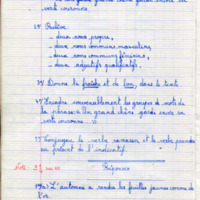 verte couronne.
2°/ Relève
- deux noms propres,
- deux noms communs masculins,
- deux noms communs féminins,
- deux adjectifs qualificatifs.
3°/ Donne la et le dans le texte
4°/ les groupes de mots de
la phrase : Un grand chêne garde encore sa
verte couronne.
5°/ Conjugue le verbe ramasser et le verbe prendre
au présent de l'indicatif.
Réponses
1°/a) L'automne a rendu les feuilles jaunes comme de
l'or.